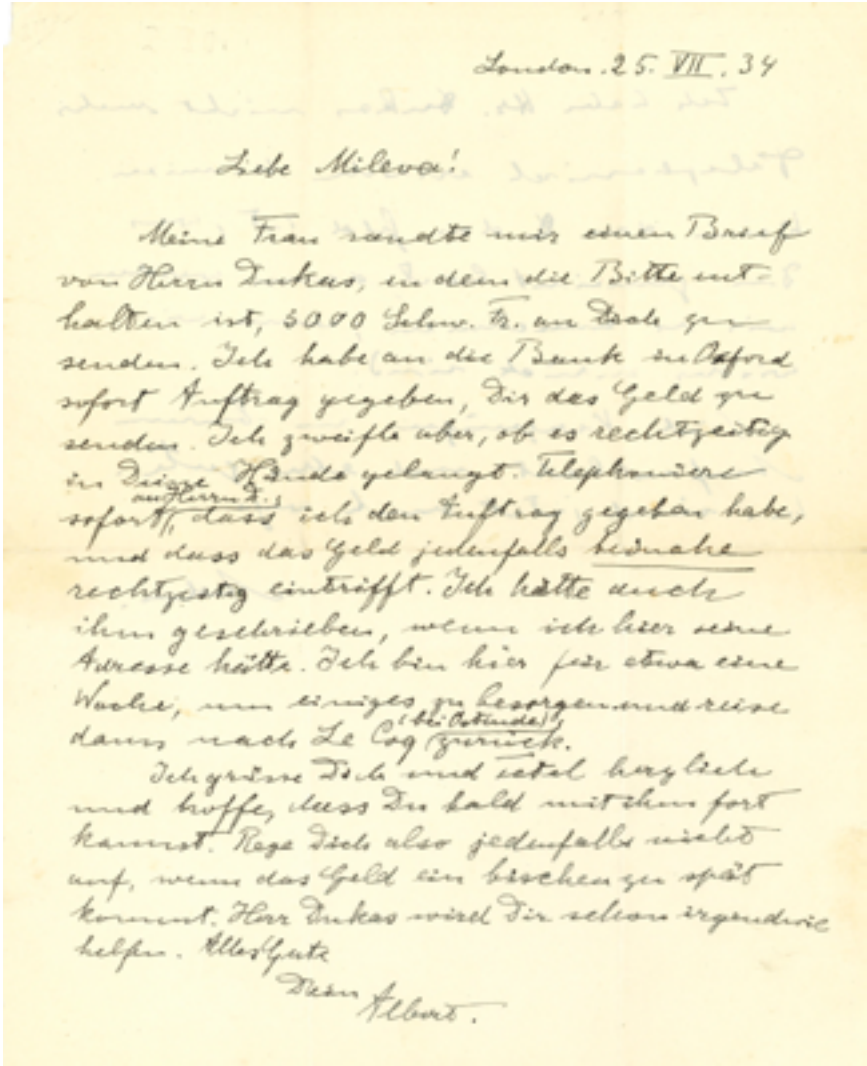 London. 25. VII. 34
Liebe Mileva!
Meine Frau sandte mir einen Brief
von Herrn Dukas, in dem die Bitte ent-
halten ist, 5000 Schw. Fr. an Dich zu
senden. Ich habe an die Bank in Oxford
sofort Auftrag gegeben, Dir das Geld zu
senden. Ich zweifle aber, ob es rechtzeitig
in Deine Hände gelangt. Telephoniere
an Herrn D.,
sofort, dass ich den Auftrag gegeben habe,
und dass das Geld jedenfalls beinahe
rechtzeitig eintrifft. Ich hätte auch
ihm geschrieben, wenn ich hier seine
Adresse hätte. Ich bin hier für etwa eine
Woche, um einiges zu besorgen und reise
(bei Ostende)
dann nach Le Coq zurück.
Ich grüsse Dich und Tetel herzlich
und hoffe, dass Du bald mit ihm fort
kannst. Rege Dich also jedenfalls nicht
auf, wenn das Geld ein bischen zu spät
kommt. Herr Dukas wird Dir schon irgendwie
helfen. Alles Gute
Dein
Albert.